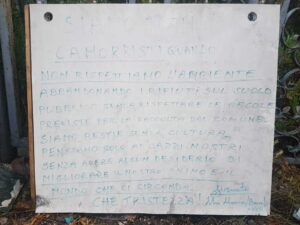 CAMORRISTI QUANDO
NON RISPETTIAMO L'AMBIENTE
ABBANDONANDO I RIFIUTI SUL SUOLO
PUBBLICO SENZA RISPETTARE LE REGOLE
PREVISTE PER LA RACCOLTA DAL COMUNE
SIAMO BESTIE SENZA CULTURA
PENSIAMO SOLO AI CAZZI NOSTRI
SENZA AVERE ALCUN DESIDERIO DI
MIGLIORARE IL NOSTRO ANIMO E IL
MONDO CHE CI CIRCONDA.
CHE TRISTEZZA!